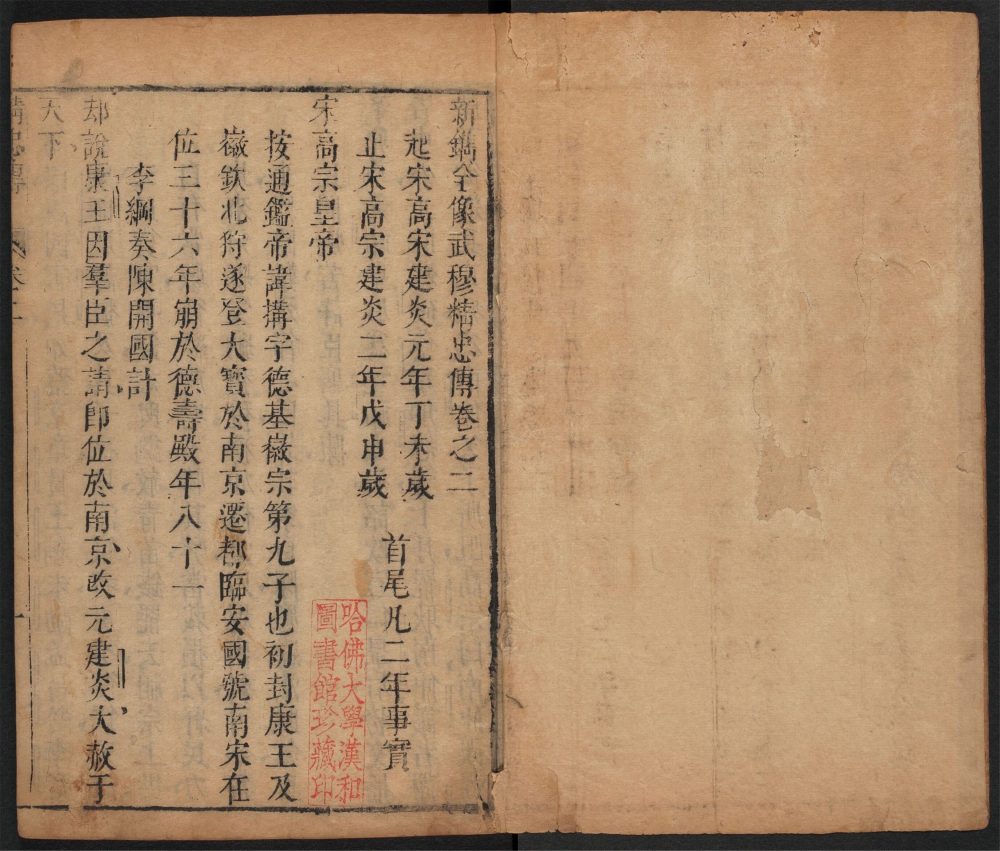 新鐫全像武穆精忠傳卷之二
起宋高宋建炎元年丁未歲
止宋高宗建炎二年戊申歲
首尾凡二年事實
宋高宗皇帝
按通鑑帝諱搆字德基徽宗第九子也初封康王及
徽欽北狩遂登大寶於南京遷都臨安國號南宋在
位三十六年崩於德壽殿年八十一
李綱奏陳開國計
却說康王因羣臣之請卽位於南京改元建炎大赦于
天下
精忠傳
卷二
一
哈佛大學漢和
圖書館珍藏印